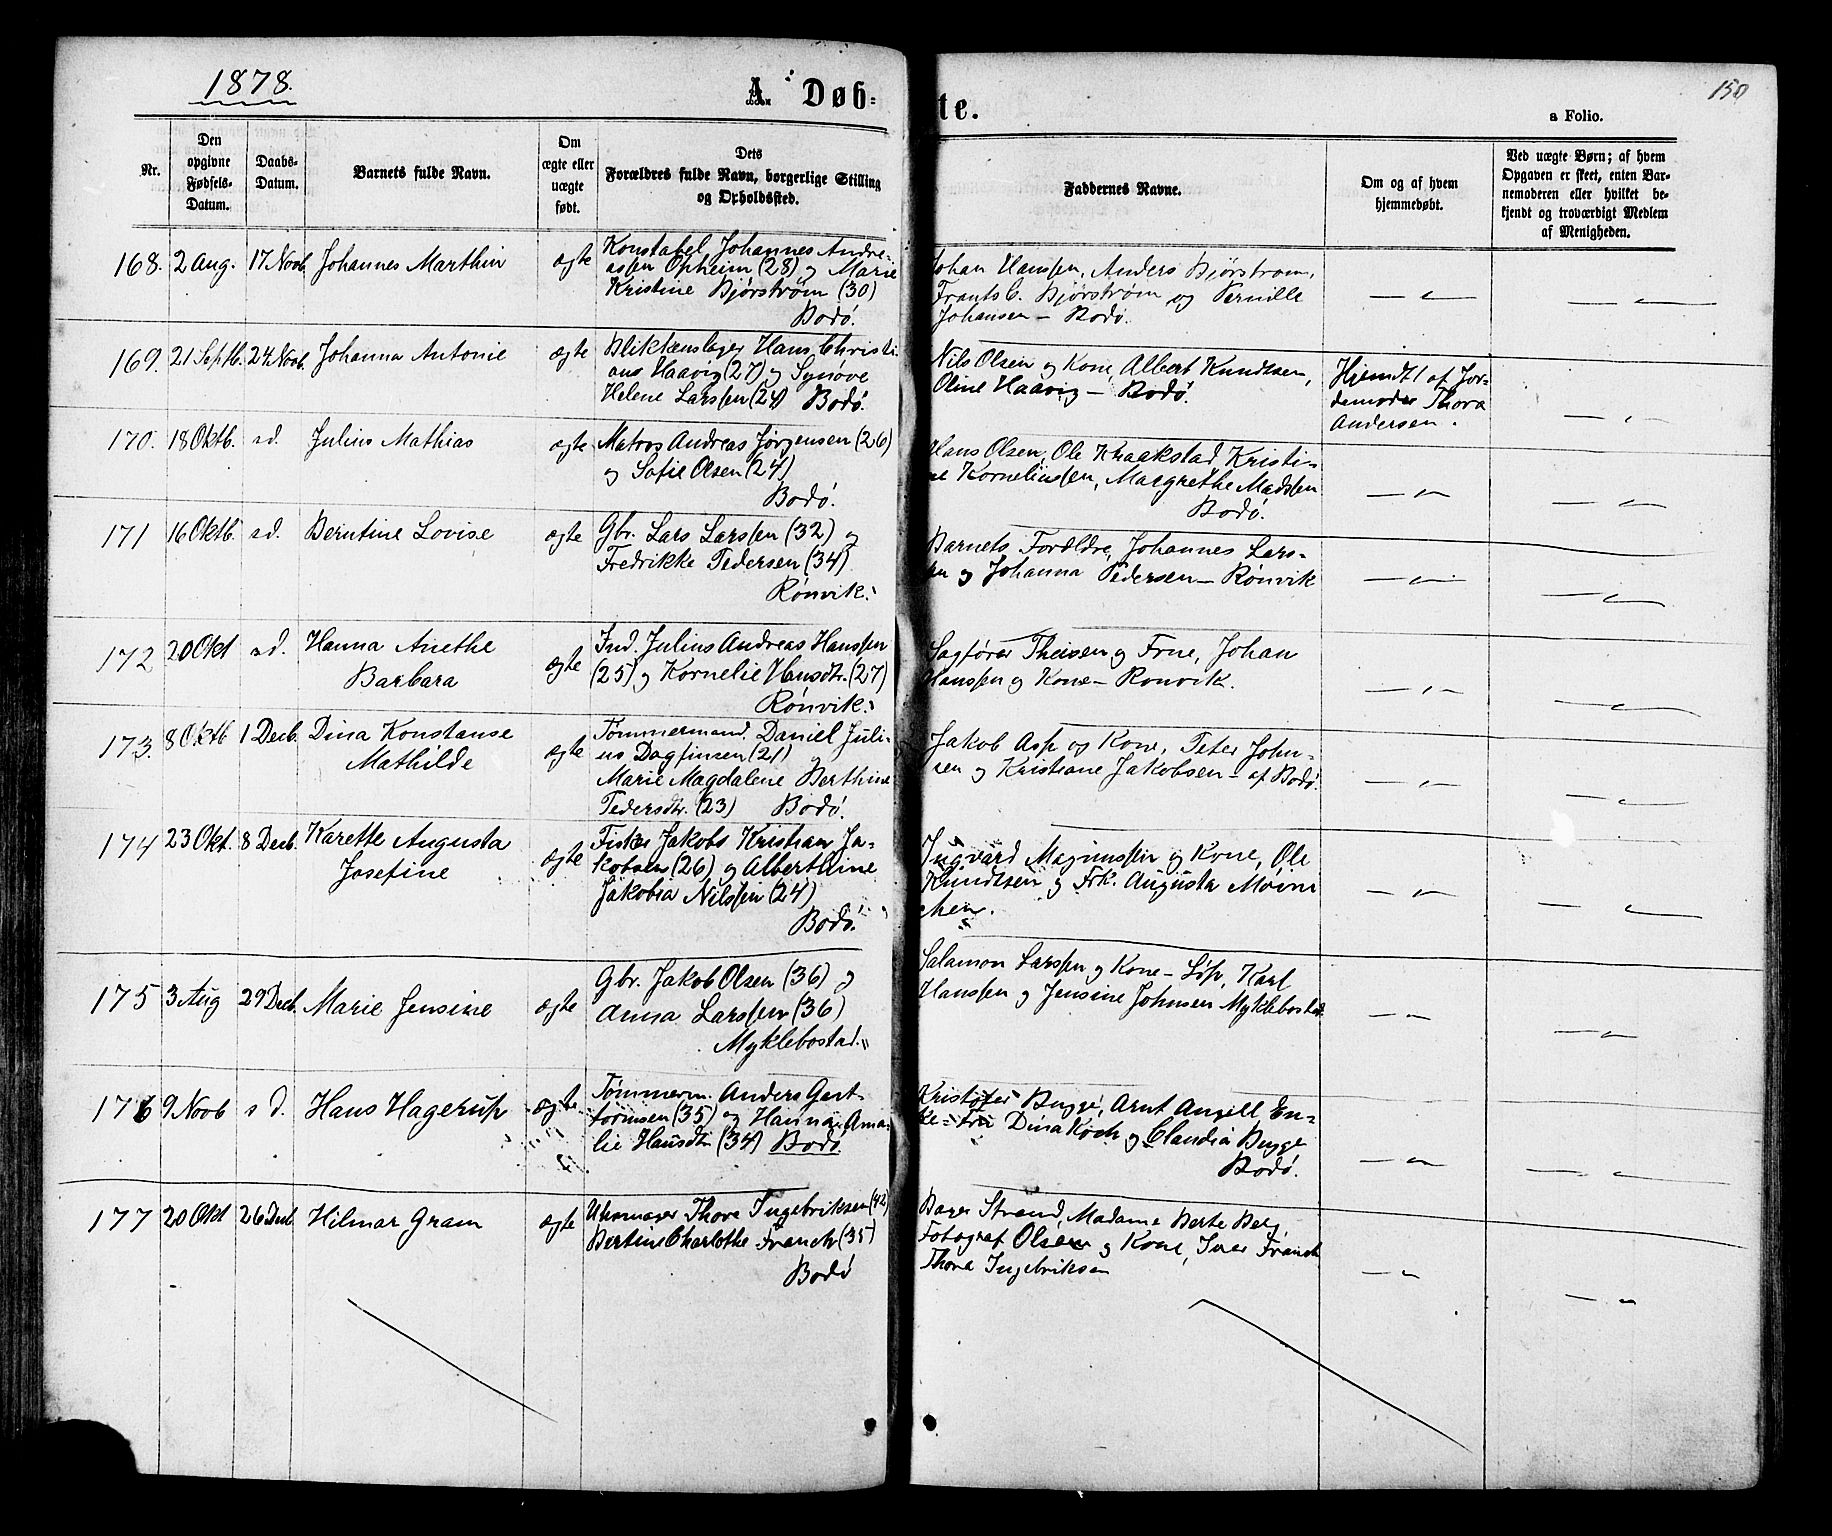 1878.
A. Døb=
te.
150
a Folio.
Nr.
Den
opgivne
Fødsels-
Datum.
Daabs-
Datum.
Barnets fulde Navn.
Om
ægte eller
uægte
født.
Dets
Forældres fulde Navn, borgerlige Stilling
og Opholdssted.
Faddernes Navne.
Om og af hvem
hjemmedøbt.
Ved uægte Børn; af hvem
Opgaven er skeet, enten Bar-
nemoderen eller hvilket be-
kjendt og troværdigt Medlem
af Menigheden.
168. 2 Aug. 17 Novb. Johannes Marthin ægte
Konstabel Johannes Andre-
assen Opheim (28) og Marie
Kristine Bjørstrøm (30)
Bodø.
Johan Hanssen, Anders Bjørstrøm,
Frants C. Bjørstrøm og Pernille
Johansen — Bodø.
— " —
— " —
169. 21 Septb. 24 Novb. Johanna Antonie ægte
Blikkenslager Hans Christi-
ans Haavig (27) og Synøve
Helene Larssen (24) Bodø.
Nils Olsen og Kone, Albert Knudtsen,
Oline Haavig — Bodø.
Hjemdt. af Jor-
demoder Thora
Andersen.
— " —
170. 18 Oktb. s.d. Julius Mathias ægte
Matros Andreas Jørgensen (26)
og Sofie Olsen (24)
Bodø.
Hans Olsen, Ole Kraakstad, Kristi-
ne Korneliussen, Margrethe Madssen
Bodø.
— " —
— " —
171 16 Oktb. s.d. Berntine Lovise ægte
Gbr. Lars Larssen (32) og
Fredrikke Pedersen (34)
Rønvik.
Barnets Forældre, Johannes Lars-
sen og Johanna Pedersen — Rønvik
— " —
— " —
172 20 Okt s.d. Hanna Anethe
Barbara
ægte
Ind. Julius Andreas Hanssen
(25) og Kornelie Hansdtr. (27)
Rønvik.
Sagfører Theisen og Frue, Johan
Hanssen og Kone — Rønvik.
— " —
— " —
173. 8 Oktb 1 Decb. Dina Konstanse
Mathilde
ægte
Tømmermand Daniel Juli-
us Dagfinsen (21)
Marie Magdalene Berthine
Pedersdtr. (23) Bodø.
Jakob Asp og Kone, Peter John-
sen og Kristiane Jakobsen — af Bodø.
— " —
— " —
174 23 Okt. 8 Decb. Karette Augusta
Josefine
ægte
Fisker Jakobs Kristian Ja-
kobsen (26) og Alberthine
Jakobia Nilssen (24)
Bodø.
Ingvard Magnussen og Kone, Ole
Knudtsen og Frk. Augusta
— " —
— " —
175 3 Aug 29 Decb. Marie Jensine ægte
Gbr. Jakob Olsen (36) og
Anna Larssen (36)
Myklebostad.
Salamon Larssen og Kone — Løp, Karl
Hanssen og Jensine Johnsen Myklebostad.
— " —
— " —
176 9 Novb s.d. Hans Hagerup ægte
Tømmerm. Anders Gust-
(35) og Hanna Ama-
lie Hansdtr (34) Bodø.
Kristofer Bugge, Arnt Angell En-
ke-Fru Dina Koch og Claudia Bugge
Bodø.
— " —
— " —
177 20 Okt 26 Decb Hilmar Gram ægte
Uhrmager Thore Ingebriksen (42)
Bertine Charlothe Franch (35)
Bodø
Bager Strand, Madame Berte Berg
Fotograf Olsen og Kone, Iver Franch
Thore Ingebriksen
— " —
— " —